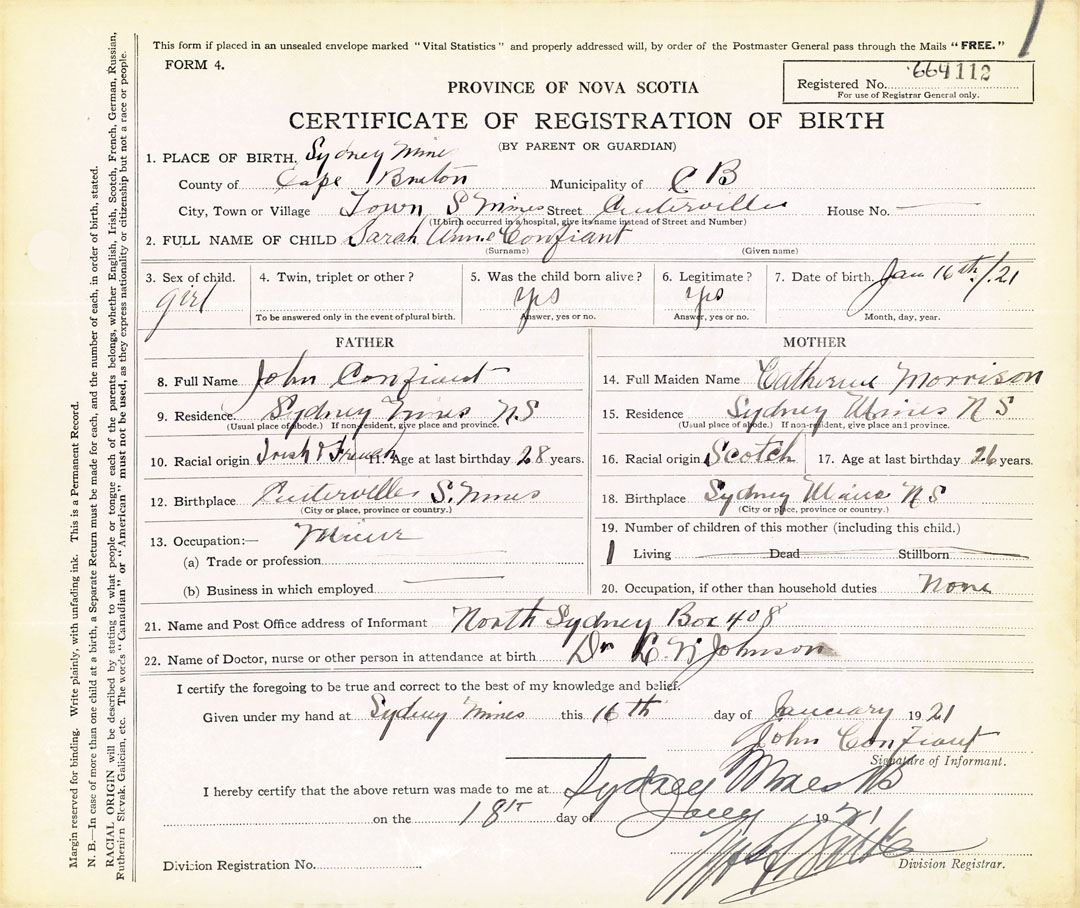 This form if placed in an unsealed envelope marked "Vital Statistics" and properly addressed will, by order of the Postmaster General pass through the Mails "FREE."
FORM 4.
Registered No. 664112
For use of Registrar General only.
PROVINCE OF NOVA SCOTIA
CERTIFICATE OF REGISTRATION OF BIRTH
(BY PARENT OR GUARDIAN)
1. PLACE OF BIRTH, Sydney Mines
County of Cape Breton Municipality of C B
City, Town or Village Town S Mines Street Centerville House No.
(If birth occurred in a hospital, give its name instead of Street and Number)
2. FULL NAME OF CHILD Sarah Anne Confiant
(Surname) (Given name)
3. Sex of child. girl
4. Twin, triplet or other?
To be answered only in the event of plural birth.
5. Was the child born alive? yes
Answer, yes or no.
6. Legitimate? yes
Answer, yes or no.
7. Date of birth. Jan 16th/21
Month, day, year.
FATHER
8. Full Name John Confiant
9. Residence. Sydney Mines N.S
(Usual place of abode.) If non-resident, give place and province.
10. Racial origin Irish & French 11. Age at last birthday 28 years.
12. Birthplace Centerville S. Mines
(City or place, province or country.)
13. Occupation:— Miner
(a) Trade or profession
(b) Business in which employed
MOTHER
14. Full Maiden Name Catherine Morrison
15. Residence Sydney Mines N S
(Usual place of abode.) If non-resident, give place and province.
16. Racial origin Scotch 17. Age at last birthday 26 years.
18. Birthplace Sydney Mines N S
(City or place, province or country.)
19. Number of children of this mother (including this child.)
1 Living Dead Stillborn
20. Occupation, if other than household duties None
21. Name and Post Office address of Informant North Sydney Box 408
22. Name of Doctor, nurse or other person in attendance at birth Dr Johnson
I certify the foregoing to be true and correct to the best of my knowledge and belief.
Given under my hand at Sydney Mines this 16th day of January 1921
John Confiant
Signature of Informant.
I hereby certify that the above return was made to me at Sydney Mines
on the 18th day of Jany 1921
Division Registration No.
Division Registrar.
Margin reserved for binding. Write plainly, with unfading ink. This is a Permanent Record.
N. B.—In case of more than one child at a birth, a Separate Return must be made for each, and the number of each, in order of birth, stated.
RACIAL ORIGIN will be described by stating to what people or tongue each of the parents belongs, whether English, Irish, Scotch, French, German, Russian,
Ruthenian Slovak, Galician, etc. The words "Canadian" or "American" must not be used, as they express nationality or citizenship but not a race or people.